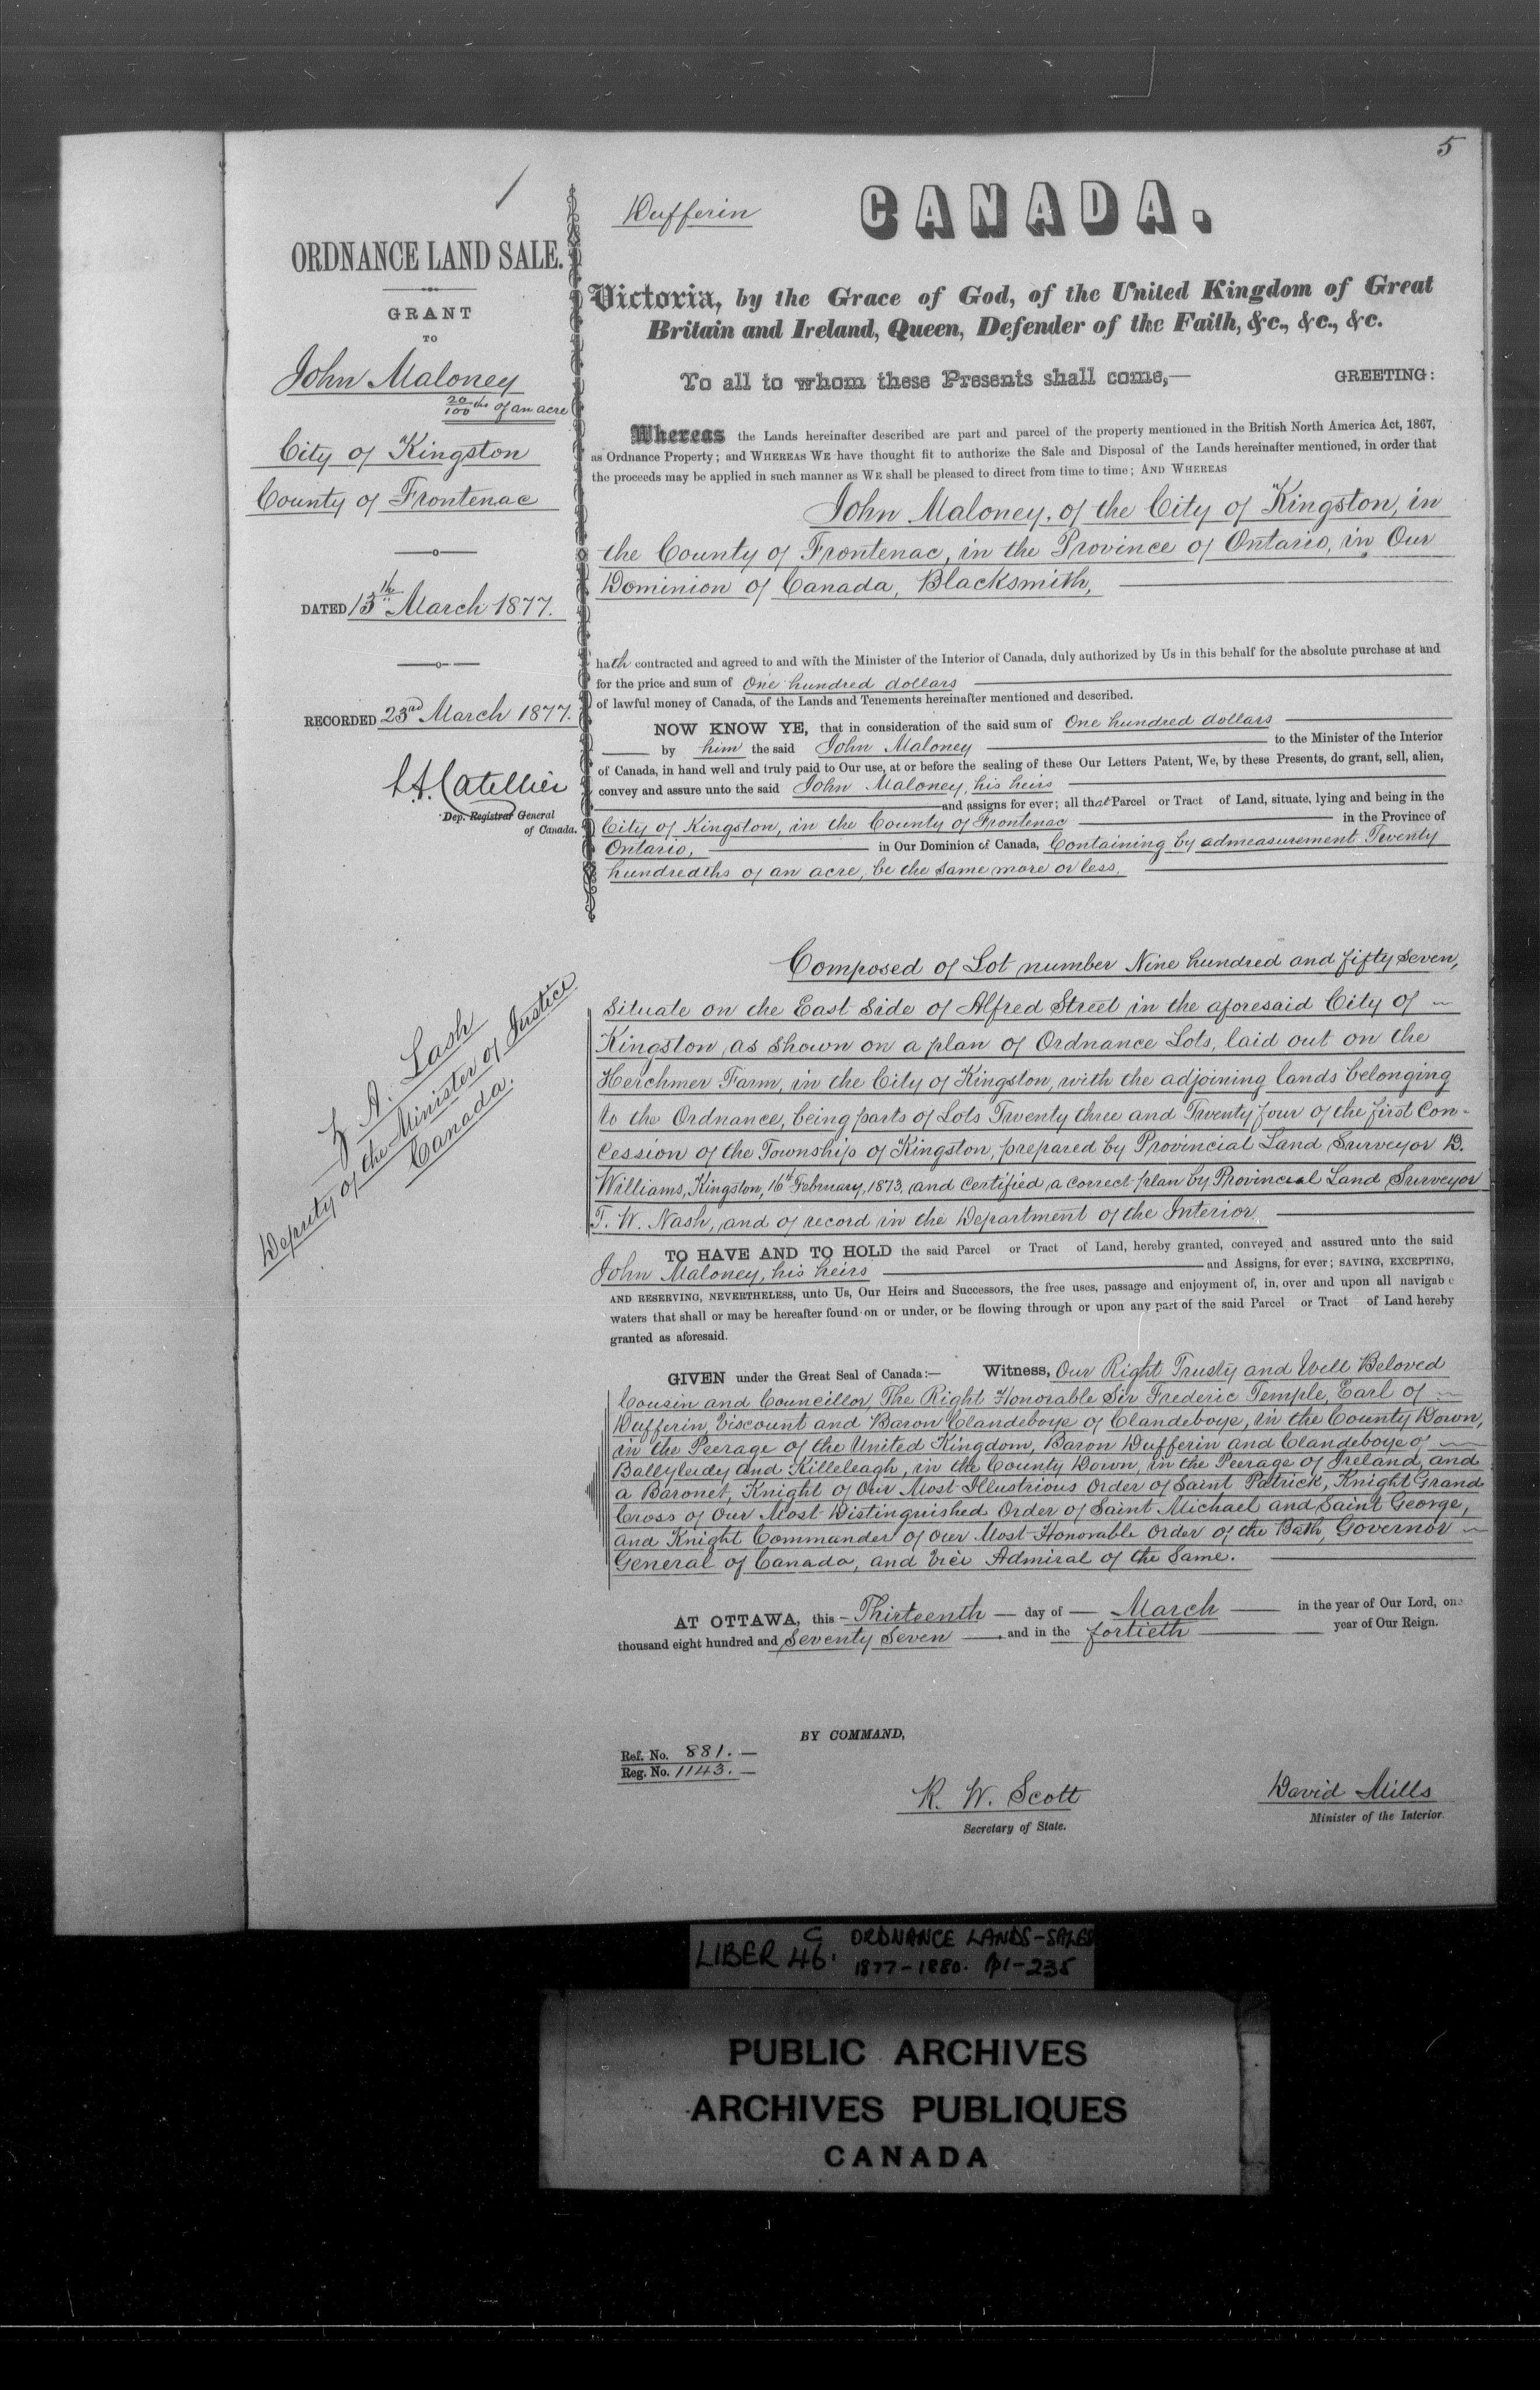 5
1
ORDNANCE LAND SALE.
GRANT
TO
John Maloney
20/100ths of an acre
City of Kingston
County of Frontenac
DATED 13th March 1877.
RECORDED 23rd March 1877.
L.A. Catellier
Dep. Registrar General
of Canada.
Z. A. Lash
Deputy of the Minister of Justice
Canada.
Dufferin
CANADA.
Victoria, by the Grace of God, of the United Kingdom of Great
Britain and Ireland, Queen, Defender of the Faith, &c., &c., &c.
To all to whom these Presents shall come,— GREETING:
Whereas the Lands hereinafter described are part and parcel of the property mentioned in the British North America Act, 1867,
as Ordnance Property; and WHEREAS WE have thought fit to authorize the Sale and Disposal of the Lands hereinafter mentioned, in order that
the proceeds may be applied in such manner as WE shall be pleased to direct from time to time; AND WHEREAS
John Maloney, of the City of Kingston, in
the County of Frontenac, in the Province of Ontario, in Our
Dominion of Canada, Blacksmith,
hath contracted and agreed to and with the Minister of the Interior of Canada, duly authorized by Us in this behalf for the absolute purchase at and
for the price and sum of One hundred dollars
of lawful money of Canada, of the Lands and Tenements hereinafter mentioned and described.
NOW KNOW YE, that in consideration of the said sum of One hundred dollars
by him the said John Maloney to the Minister of the Interior
of Canada, in hand well and truly paid to Our use, at or before the sealing of these Our Letters Patent, We, by these Presents, do grant, sell, alien,
convey and assure unto the said John Maloney, his heirs
and assigns for ever; all that Parcel or Tract of Land, situate, lying and being in the
City of Kingston, in the County of Frontenac in the Province of
Ontario, in Our Dominion of Canada, Containing by admeasurement Twenty
hundredths of an acre, be the same more or less.
Composed of Lot number Nine hundred and fifty seven,
Situate on the East Side of Alfred Street in the aforesaid City of
Kingston, as shown on a plan of Ordnance Lots, laid out on the
Herchmer Farm, in the City of Kingston, with the adjoining lands belonging
to the Ordnance, being parts of Lots Twenty three and Twenty four of the first Con-
cession of the Township of Kingston, prepared by Provincial Land Surveyor B.
Williams, Kingston, 16th February, 1873, and certified a correct plan by Provincial Land Surveyor
T. W. Nash, and of record in the Department of the Interior
TO HAVE AND TO HOLD the said Parcel or Tract of Land, hereby granted, conveyed and assured unto the said
John Maloney, his heirs and Assigns, for ever; SAVING, EXCEPTING,
AND RESERVING, NEVERTHELESS, unto Us, Our Heirs and Successors, the free uses, passage and enjoyment of, in, over and upon all navigab e
waters that shall or may be hereafter found on or under, or be flowing through or upon any part of the said Parcel or Tract of Land hereby
granted as aforesaid.
GIVEN under the Great Seal of Canada:— Witness, Our Right Trusty and Well Beloved
Cousin and Councillor, The Right Honorable Sir Frederic Temple, Earl of
Dufferin, Viscount and Baron Clandeboye of Clandeboye, in the County Down,
in the Peerage of the United Kingdom, Baron Dufferin and Clandeboye of
Ballyleidy and Killeleagh, in the County Down, in the Peerage of Ireland, and
a Baronet, Knight of Our Most Illustrious Order of Saint Patrick, Knight Grand
Cross of Our Most Distinguished Order of Saint Michael and Saint George,
and Knight Commander of Our Most Honorable Order of the Bath, Governor
General of Canada, and Vice Admiral of the Same.
AT OTTAWA, this Thirteenth day of March in the year of Our Lord, one
thousand eight hundred and Seventy Seven and in the fortieth year of Our Reign.
BY COMMAND,
Ref. No. 881.
Reg. No. 1143.
R. W. Scott
Secretary of State.
David Mills
Minister of the Interior.
LIBER 46. C ORDNANCE LANDS-SALES
1877-1880. p1-235
PUBLIC ARCHIVES
ARCHIVES PUBLIQUES
CANADA